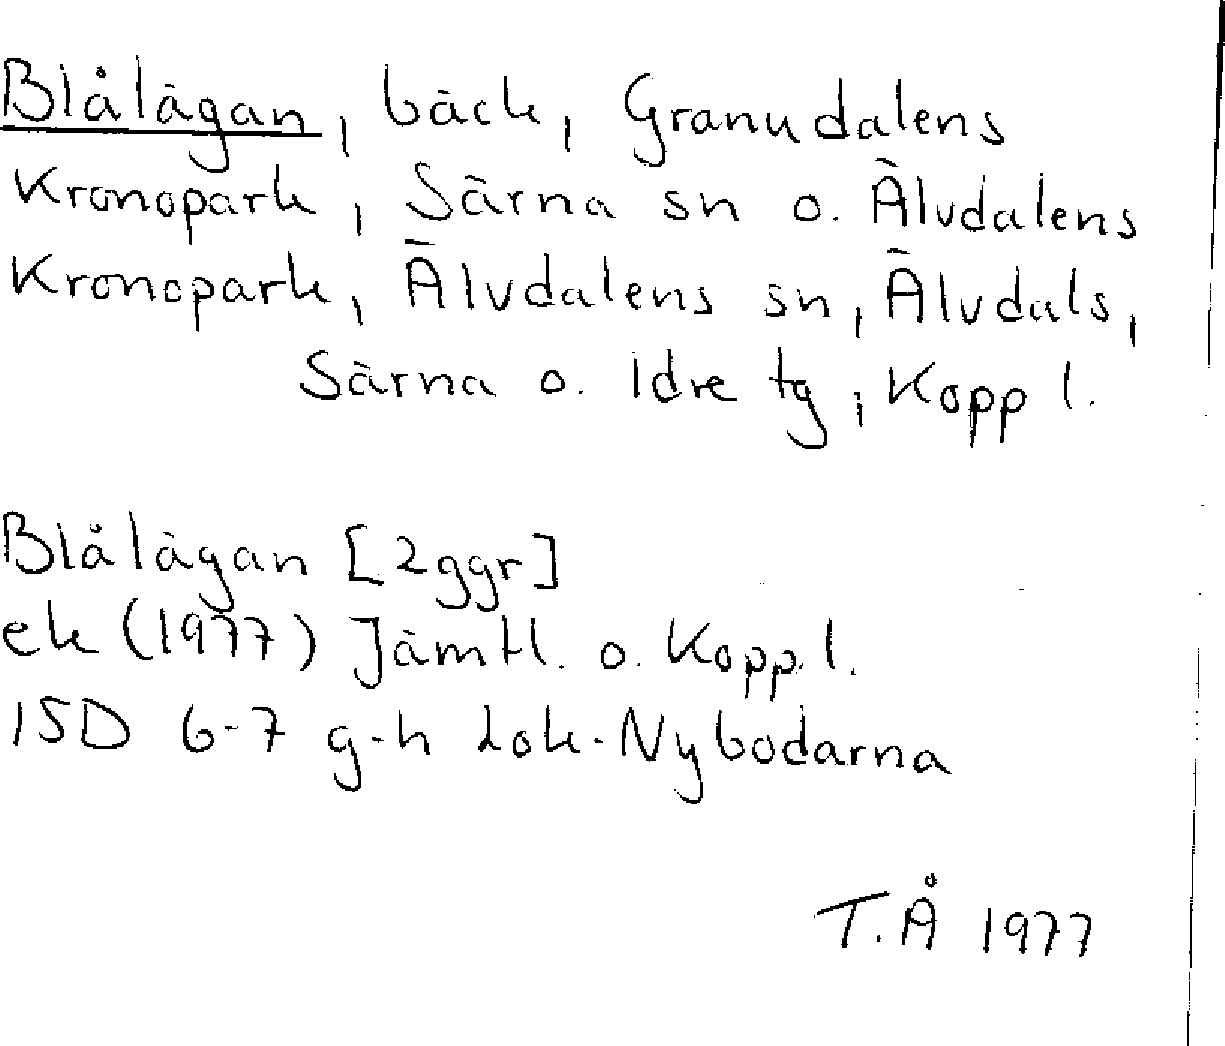 Blålägan, bäck, Granudalens
Kronopark, Särna sn o. Älvdalens
Kronopark, Älvdalens sn, Älvdals,
Särna o. Idre tg, Kopp l.
Blålägan [2ggr]
ek (1977) Jämtl. o. Kopp. l.
15D 6-7 g-h Lok-Nybodarna
T.Å 1977